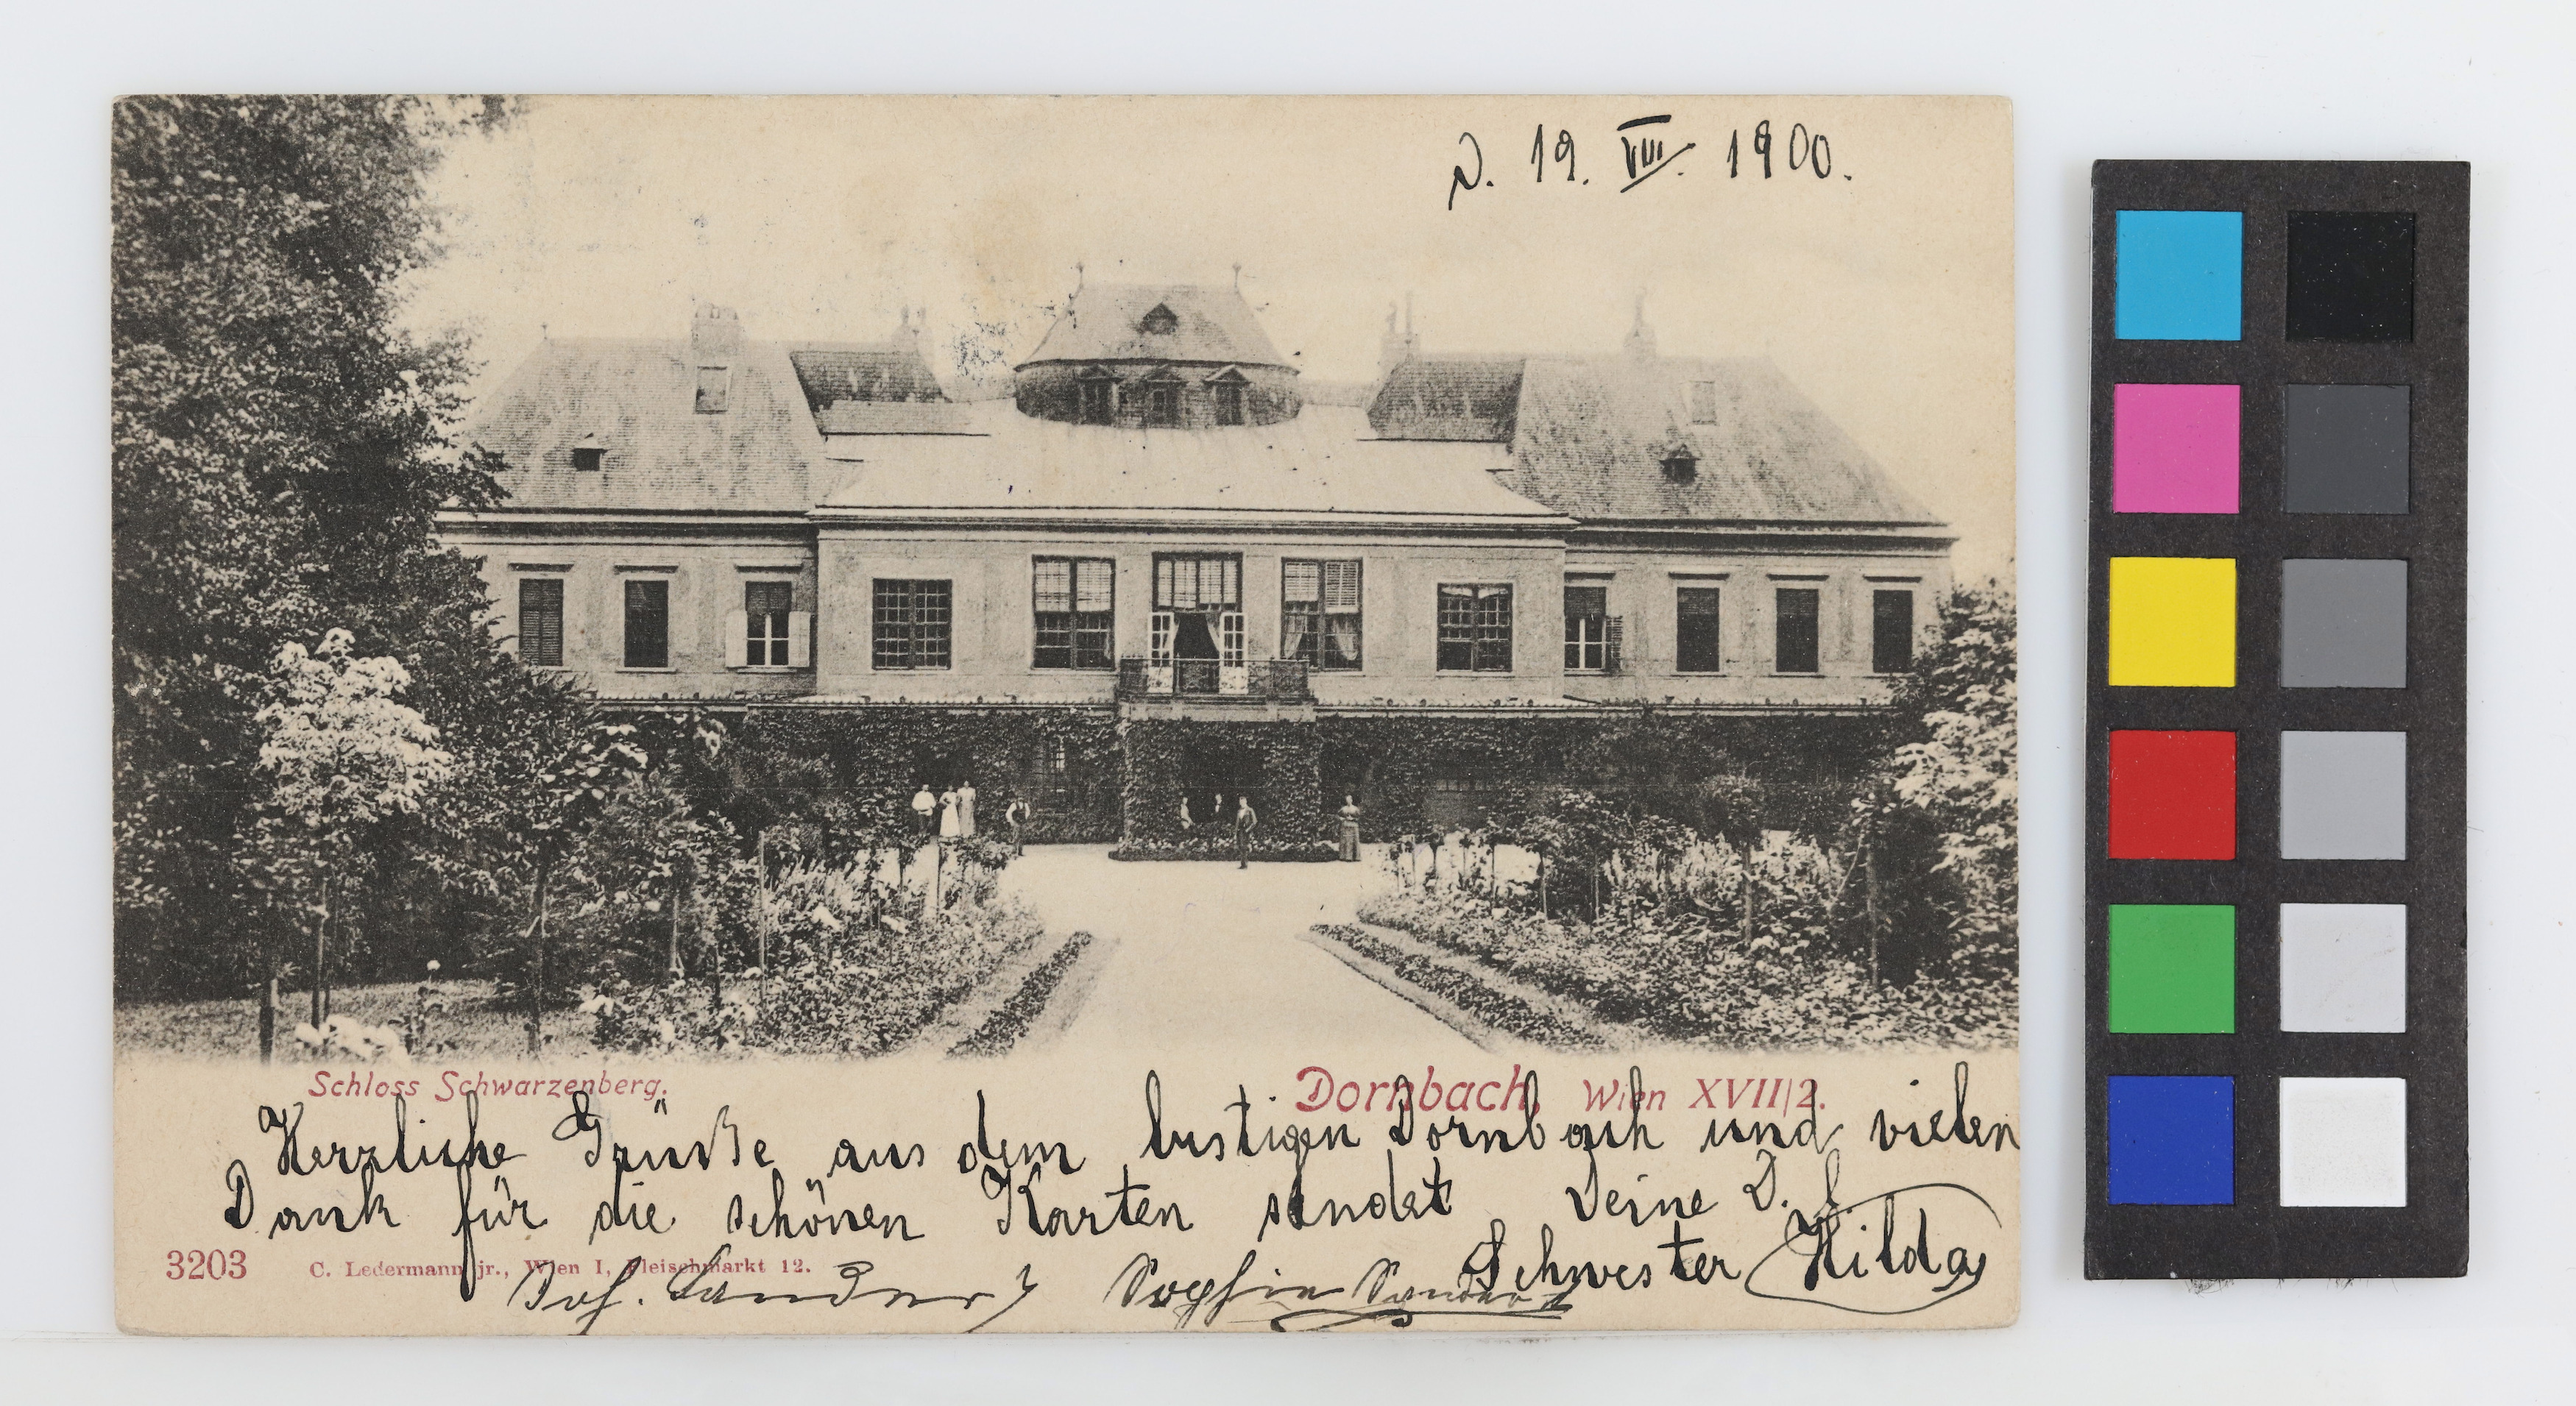 D. 19. VIII. 1900.
Schloss Schwarzenberg.
Dornbach, Wien XVII/2.
Herzliche Grüße aus dem lustigen Dornbach und vielen
Dank für die schönen Karten sendet Deine D. l.
Schwester Hilda
3203 C. Ledermann jr., Wien I, Fleischmarkt 12.
Jos. Sophie